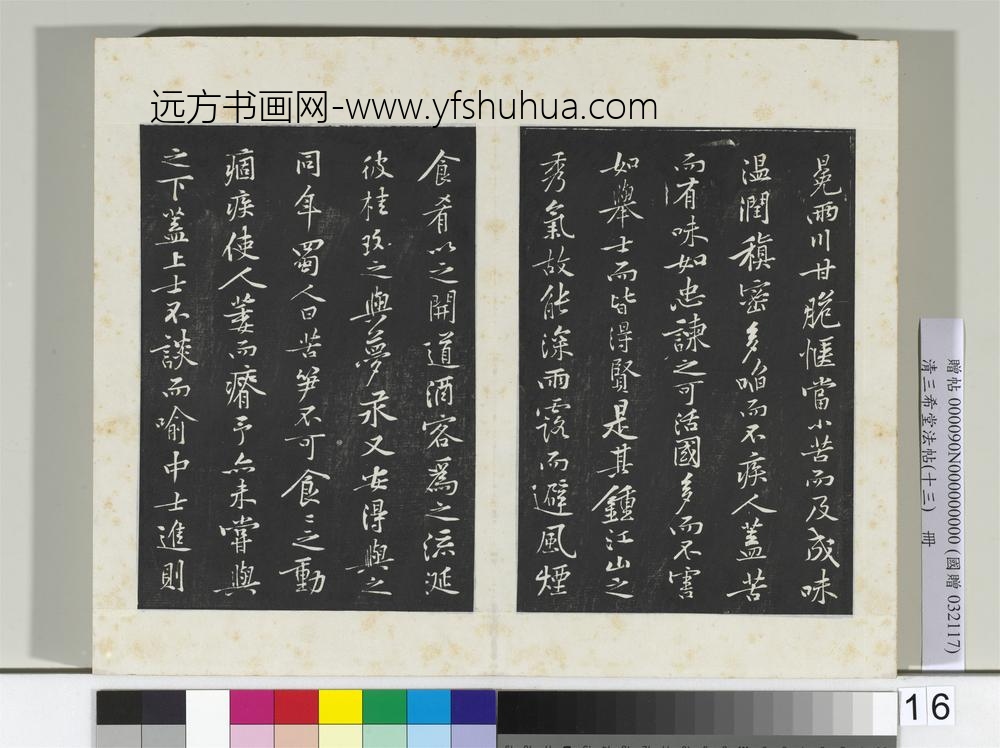 远方书画网-www.yfshuhua.com
冕兩川甘脆愜當小苦而及成味
温潤稹密多啗而不疾人蓋苦
而有味如忠諫之可活國多而不害
如舉士而皆得賢是其鍾江山之
秀氣故能深雨露而避風煙
食肴以之開道酒客爲之流涎
彼桂玫之與夢永又安得與之
同年蜀人曰苦笋不可食〻之動
痼疾使人萎而瘠予亦未嘗與
之下蓋上士不談而喻中士進則
贈帖 0000090N000000000 (國贈 032117)
清三希堂法帖(十三) 冊
16